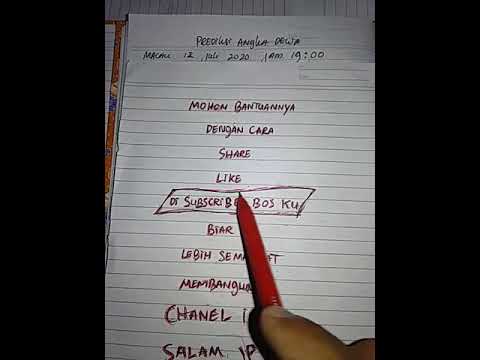 PREDIKSI ANGKA DEWA
MACAU 12 Juli 2020 JAM 19:00
MOHON BANTUANNYA
DENGAN CARA
SHARE
LIKE
DI SUBSCRIBE BOS KU
BIAR
LEBIH
CHANEL
SALAM JP